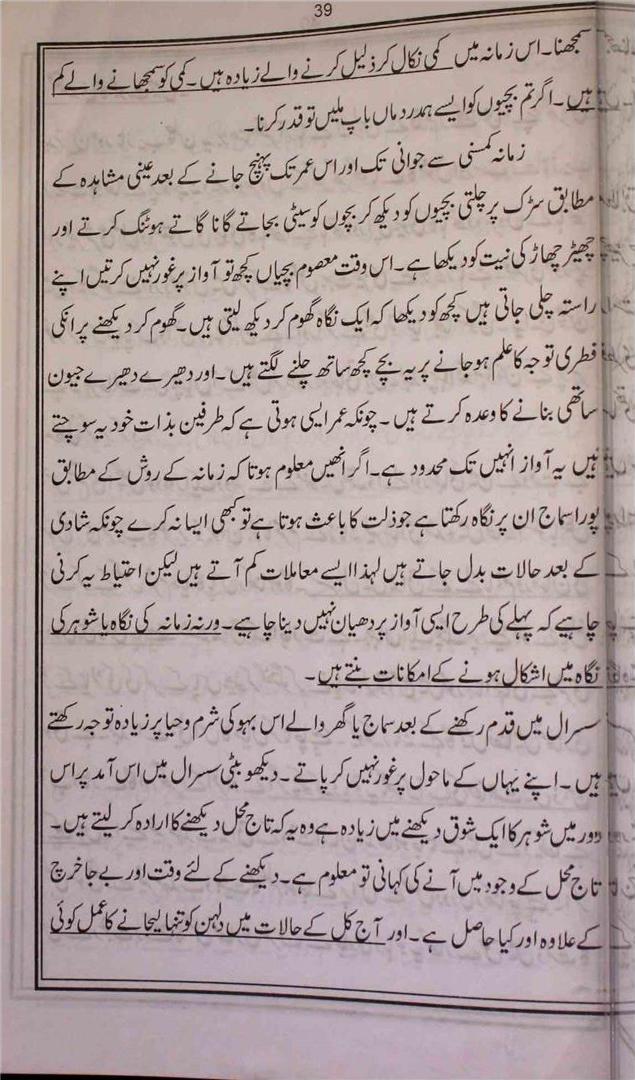 39
سمجھنا۔ اس زمانہ میں کمی نکال کر ذلیل کرنے والے زیادہ ہیں۔ کمی کو سمجھانے والے کم
ہیں۔ اگر تم بچیوں کو ایسے ہمدرد ماں باپ ملیں تو قدر کرنا۔
زمانہ کمسنی سے جوانی تک اور اس عمر تک پہنچ جانے کے بعد عینی مشاہدہ کے
مطابق سڑک پر چلتی بچیوں کو دیکھ کر بچوں کو سیٹی بجاتے گانا گاتے ہوٹنگ کرتے اور
چھیڑ چھاڑ کی نیت کو دیکھا ہے۔ اس وقت معصوم بچیاں کچھ تو آواز پر غور نہیں کرتیں اپنے
راستہ چلی جاتی ہیں کچھ کو دیکھا کہ ایک نگاہ گھوم کر دیکھ لیتی ہیں۔ گھوم کر دیکھنے پر انکی
فطری توجہ کا علم ہو جانے پر یہ بچے کچھ ساتھ چلنے لگتے ہیں۔ اور دھیرے دھیرے جیون
ساتھی بنانے کا وعدہ کرتے ہیں۔ چونکہ عمر ایسی ہوتی ہے کہ طرفین بذات خود یہ سوچتے
ہیں یہ آواز انہیں تک محدود ہے۔ اگر انھیں معلوم ہوتا کہ زمانہ کے روش کے مطابق
پورا سماج ان پر نگاہ رکھتا ہے جو ذلت کا باعث ہوتا ہے تو کبھی ایسا نہ کرے چونکہ شادی
کے بعد حالات بدل جاتے ہیں لہذا ایسے معاملات کم آتے ہیں لیکن احتیاط یہ کرنی
چاہیے کہ پہلے کی طرح ایسی آواز پر دھیان نہیں دینا چاہیے۔ ورنہ زمانہ کی نگاہ یا شوہر کی
نگاہ میں اشکال ہونے کے امکانات بنتے ہیں۔
سسرال میں قدم رکھنے کے بعد سماج یا گھر والے اس بہو کی شرم و حیا پر زیادہ توجہ رکھتے
ہیں۔ اپنے یہاں کے ماحول پر غور نہیں کر پاتے۔ دیکھو بیٹی سسرال میں اس آمد پر اس
دور میں شوہر کا ایک شوق دیکھنے میں زیادہ ہے وہ یہ کہ تاج محل دیکھنے کا ارادہ کر لیتے ہیں۔
تاج محل کے وجود میں آنے کی کہانی تو معلوم ہے۔ دیکھنے کے لئے وقت اور بے جا خرچ
کے علاوہ اور کیا حاصل ہے۔ اور آج کل کے حالات میں دلہن کو تنہا لیجانے کا عمل کوئی